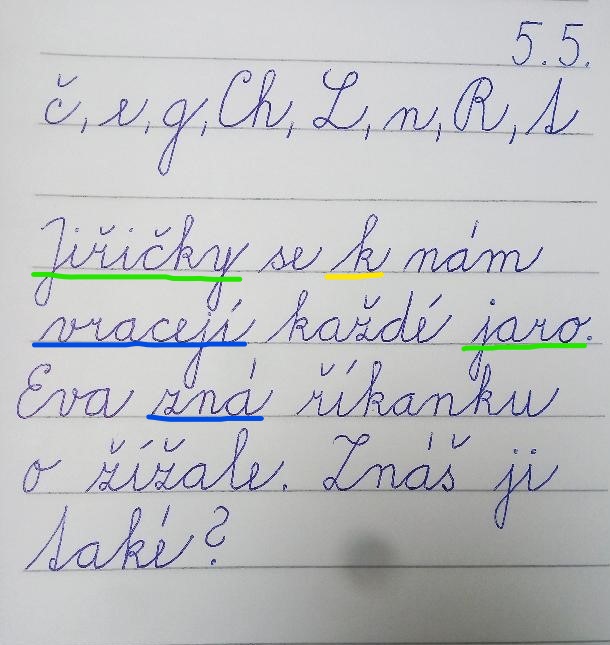 5.5.
č, e, g, Ch, L, n, R, t
Jiřičky se k nám
vracejí každé jaro.
Eva zná říkanku
o žížale. Znáš ji
také?